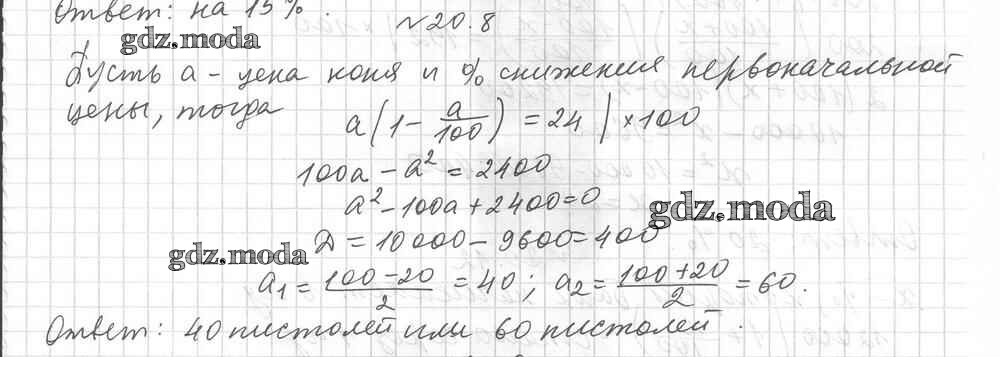 Ответ: на 15%.
№20.8
gdz.moda
Пусть a - цена коня и % снижения первоначальной
цены, тогда a(1 - a/100) = 24 | ×100
100a - a² = 2400
a² - 100a + 2400 = 0
gdz.moda
D = 10000 - 9600 = 400
gdz.moda
a₁ = (100-20)/2 = 40; a₂ = (100+20)/2 = 60.
Ответ: 40 пистолей или 60 пистолей.